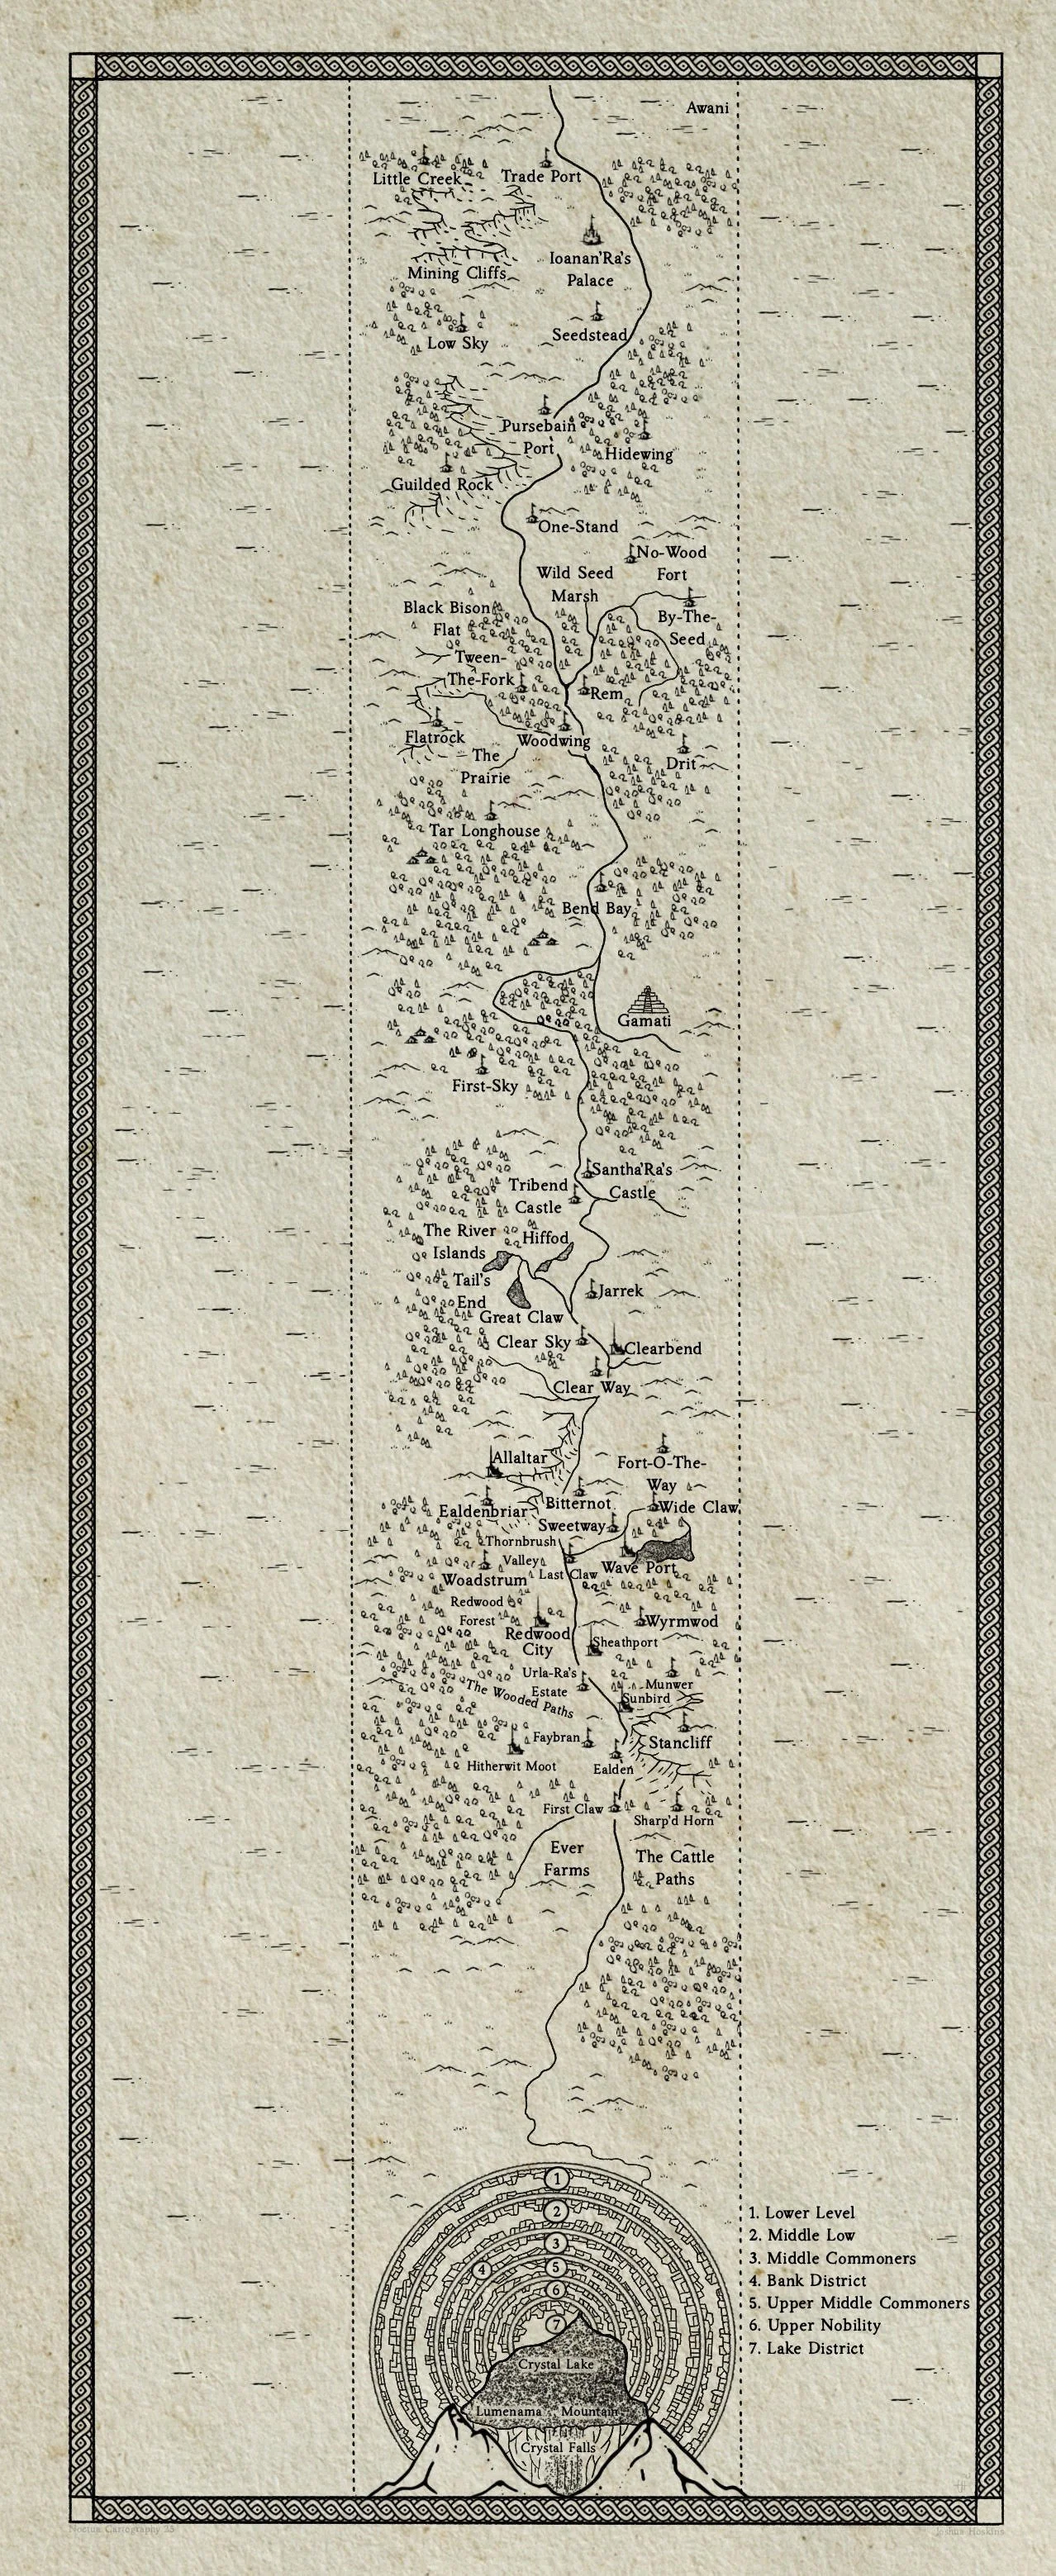 Awani
Little Creek
Trade Port
Ioanan'Ra's
Palace
Mining Cliffs
Seedstead
Low Sky
Pursebain
Port
Hidewing
Guilded Rock
One-Stand
No-Wood
Fort
Wild Seed
Marsh
Black Bison
Flat
By-The-
Seed
Tween-
The-Fork
Rem
Flatrock
Woodwing
The
Prairie
Drit
Tar Longhouse
Bend Bay
Gamati
First-Sky
Santha'Ra's
Castle
Tribend
Castle
The River
Islands
Hiffod
Tail's
End
Jarrek
Great Claw
Clear Sky
Clearbend
Clear Way
Allaltar
Fort-O-The-
Way
Bitternot
Wide Claw
Ealdenbriar
Sweetway
Thornbrush
Valley
Last Claw
Wave Port
Woadstrum
Redwood
Forest
Redwood
City
Wyrmwod
Sheathport
Urla-Ra's
Estate
Munwer
Sunbird
The Wooded Paths
Faybran
Stancliff
Hitherwit Moot
Ealden
First Claw
Sharp'd Horn
Ever
Farms
The Cattle
Paths
1
2
3
4
5
6
7
1. Lower Level
2. Middle Low
3. Middle Commoners
4. Bank District
5. Upper Middle Commoners
6. Upper Nobility
7. Lake District
Crystal Lake
Lumenama Mountain
Crystal Falls
Cartography 23
Joshua Hoskins